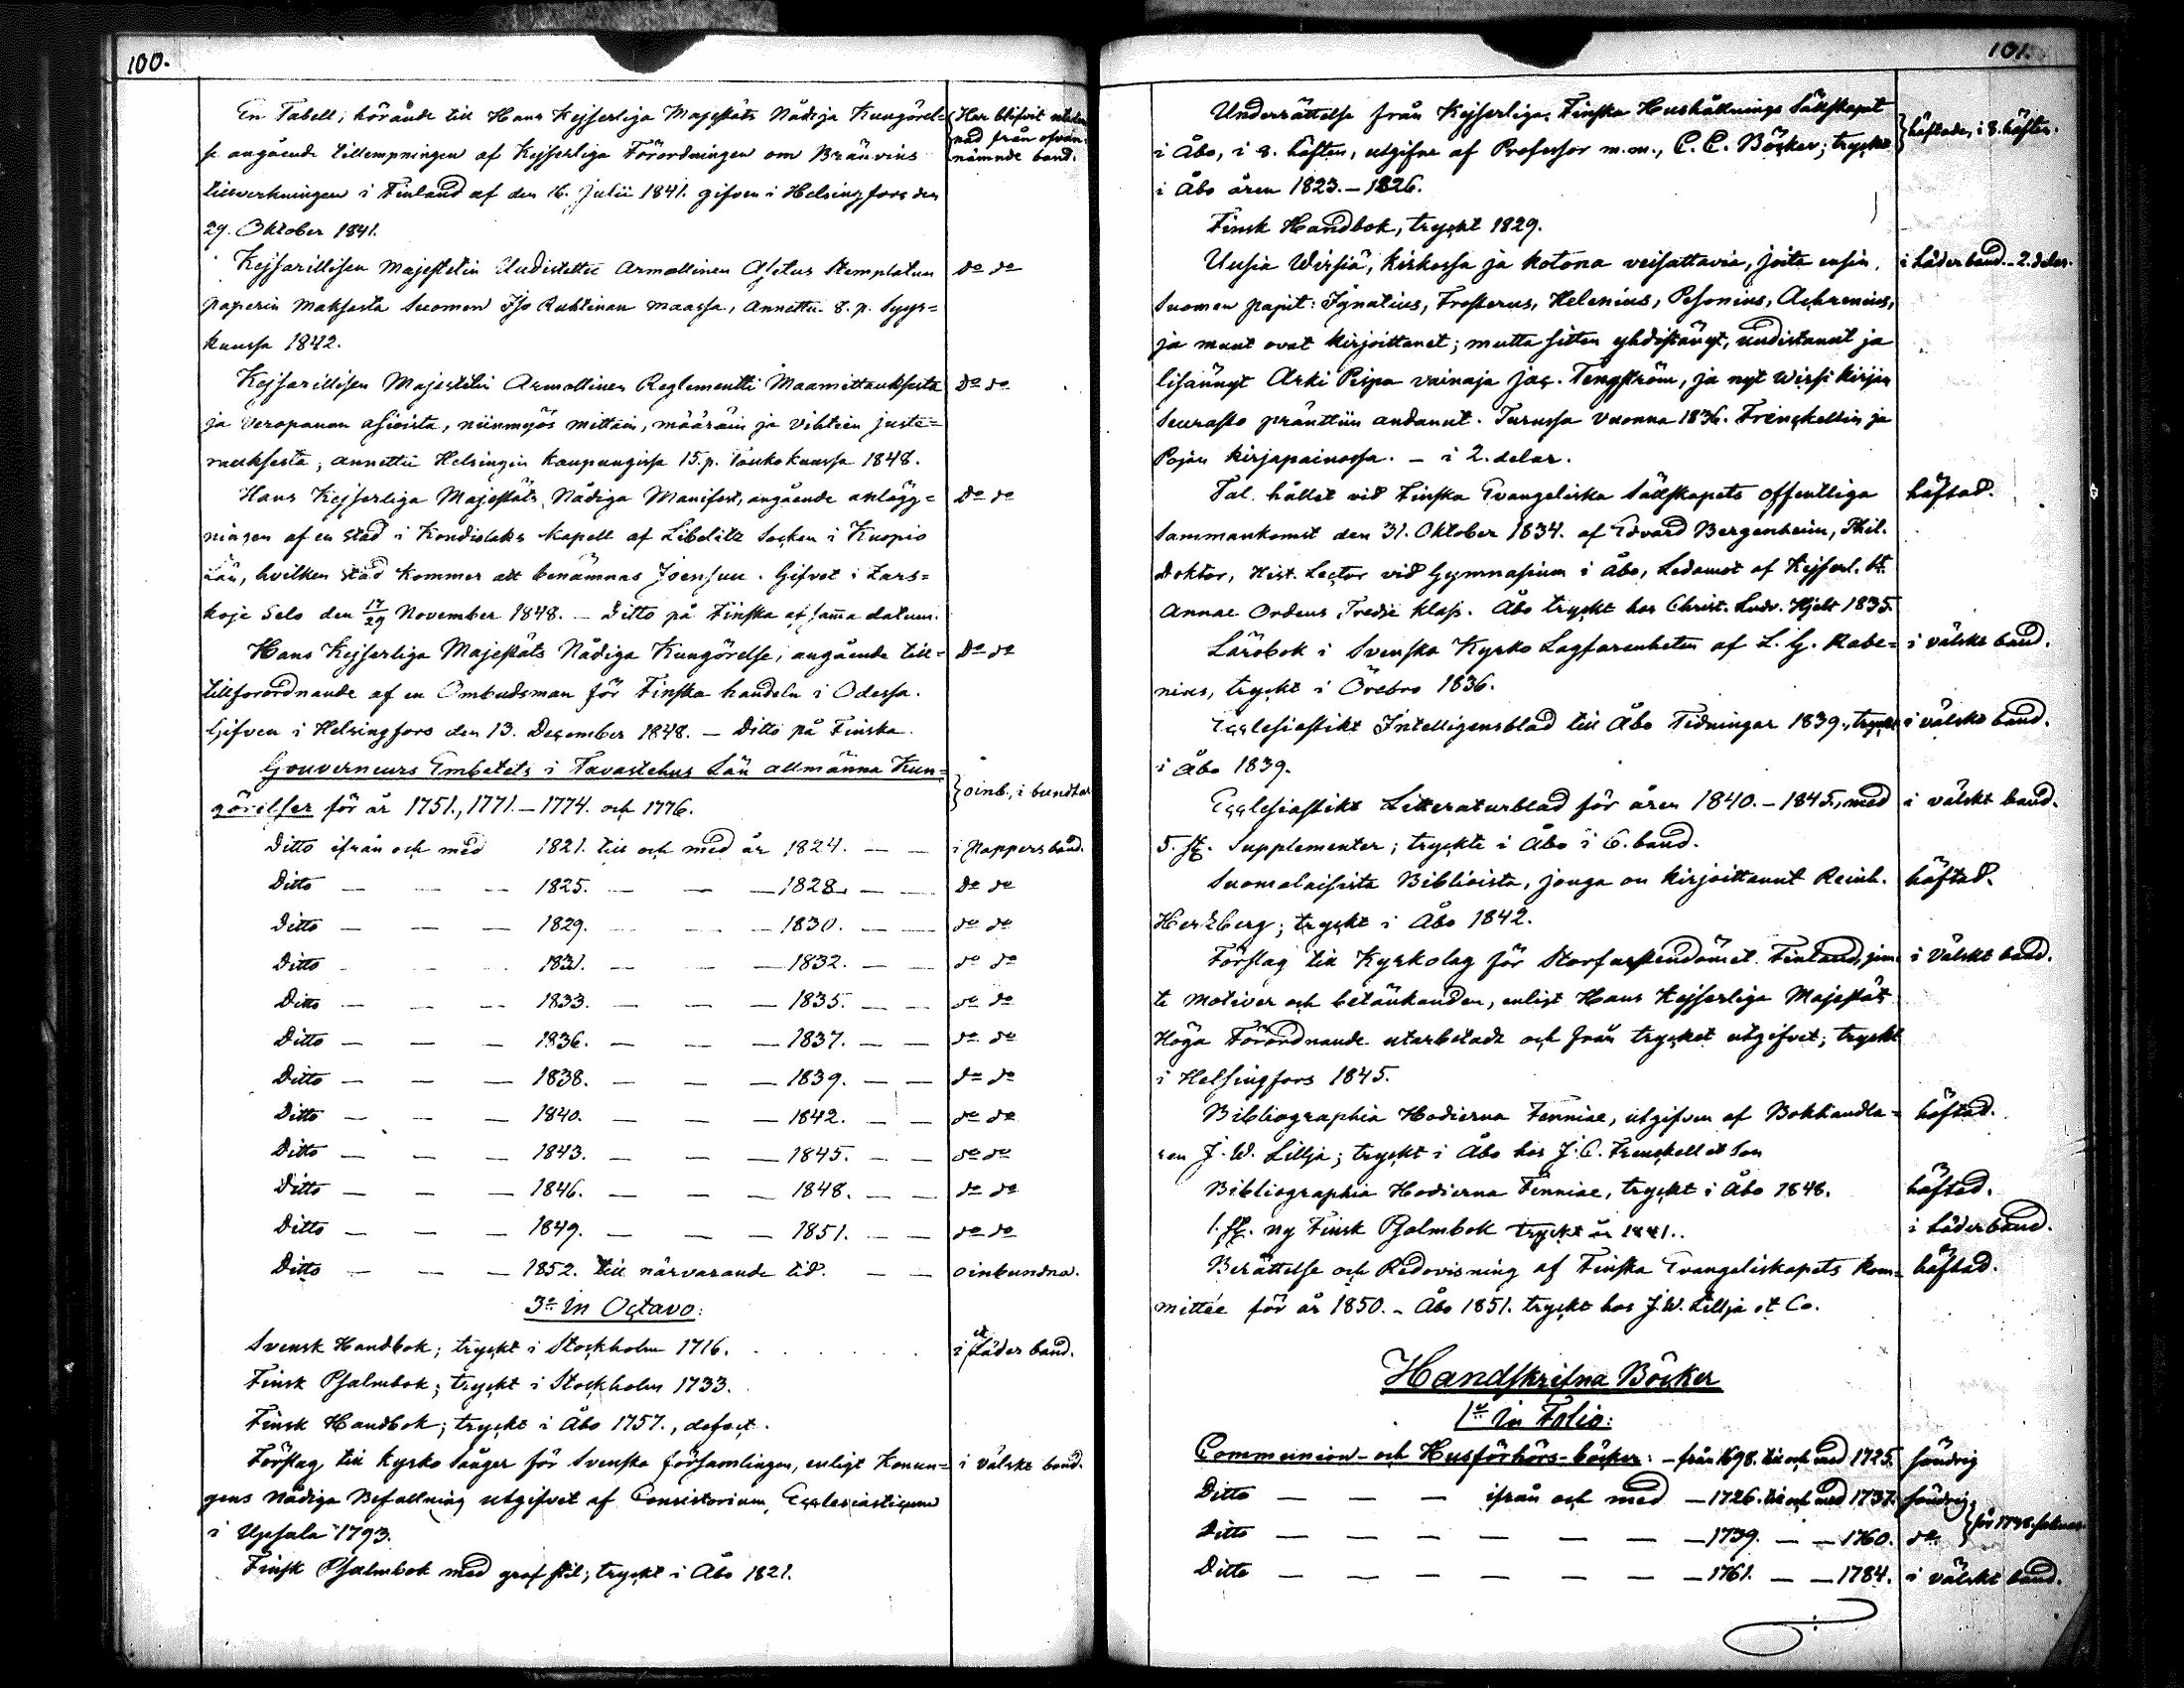 100.
En Tabell, hörande till Hans Kejserliga Majestäts Nådiga Kungörel= Har blifvit
se angående tillempningen af Kejserliga Förordningen om Bränvins nad från ofvan
tillverkningen i Finland af den 16. Julii 1841. gifven i Helsingfors den nämnde band.
29. Oktober 1841.
Kejsarillisen Majestetin Uudistettu Armollinen Asetus Stemplatun do do
paperin Maksosta Suomen Iso Ruhtinan maassa, Annettu 8. p. Syys=
kuussa 1842.
Kejsarillisen Majestetin Armollinen Reglementti Maamittauksesta Do do
ja Veropanon asioista, niinmyös mittain, määräin ja Vihtien juste=
rauksesta; annettu Helsingin kaupungissa 15. p. Toukokuussa 1848.
Hans Kejserliga Majestäts Nådiga Manifest, angående anlägg= Do do
ningen af en stad i Kondiolaks kapell af Libelitz Socken i Kuopio
Län, hvilken stad kommer att benämnas Joensuu. Gifvet i Zars=
koje Selo den 17/29 November 1848. – Ditto på Finska af samma datum.
Hans Kejserliga Majestäts Nådiga Kungörelse, angående till= Do do
tillforordnande af en Ombudsman för Finska handeln i Odessa.
Gifven i Helsingfors den 13. December 1848. – Ditto på Finska.
Gouverneurs Embetets i Tavastehus Län allmänna Kun=
görelser för år 1751., 1771. – 1774. och 1776. oinb., i bundtar
Ditto ifrån och med 1821. till och med år 1824. — — i Pappersband.
Ditto — — — 1825. — — — 1828. — — Do do
Ditto — — — 1829. — — — 1830. — — do do
Ditto — — — 1831. — — — 1832. — — do do
Ditto — — — 1833. — — — 1835. — — do do
Ditto — — — 1836. — — — 1837. — — do do
Ditto — — — 1838. — — — 1839. — — do do
Ditto — — — 1840. — — — 1842. — — do do
Ditto — — — 1843. — — — 1845. — — do do
Ditto — — — 1846. — — — 1848. — — do do
Ditto — — — 1849. — — — 1851. — — do do
Ditto — — — 1852. till närvarande tid. — — oinbundna.
3o in Octavo:
Svensk Handbok; tryckt i Stockholm 1716. i et Läder band.
Finsk Psalmbok; tryckt i Stockholm 1733.
Finsk Handbok; tryckt i Åbo 1757., defect.
Förslag till Kyrko Sånger för Svenska församlingen, enligt Konun= i välskt band.
gens Nådiga Befallning utgifvet af Consistorium Ecclesiasticum
i Upsala 1793.
Finsk Psalmbok med grof stil; tryckt i Åbo 1821.
101.
Underrättelse från Kejserliga Finska Hushållnings Sällskapet
i Åbo, i 8. häften, utgifne af Professor m.m., C. C. Böcker; tryckt häftade, i 8. häften.
i Åbo åren 1823. – 1826.
Finsk Handbok, tryckt 1829.
Uusia Wirsiä, kirkossa ja kotona veisattavia, joita ensin, i Läderband – 2. delar.
Suomen papit: Ignatius, Frosterus, Helenius, Pesonius, Achrenius,
ja muut ovat kirjoittanet; mutta sitten yhdistänyt, uudistanut ja
lisännyt Arki Pispa vainaja Jac. Tengström, ja nyt Wirsi kirjan
Seurasto präntliin andanut. Turussa Vuonna 1836. Frenckellin ja
Pojan kirjapainossa. – i 2. delar.
Tal, hållet vid Finska Evangeliska Sällskapets offentliga häftad.
Sammankomst den 31. Oktober 1834. af Edvard Bergenheim, Phil.
Doktor, Hist. Lector vid Gymnasium i Åbo, Ledamot af Kejserl. St.
Annae Ordens Tredje klass. Åbo tryckt hos Christ. Ludv. Hjelt 1835.
Lärobok i Svenska Kyrko Lagfarenheten af L. G. Rabe= i välskt band.
nius, tryckt i Örebro 1836.
Ecclesiastikt Intelligensblad till Åbo Tidningar 1839., tryckt i välskt band.
i Åbo 1839.
Ecclesiastikt Litteraturblad för åren 1840. – 1845., med i välskt band.
5. st. Supplementer; tryckte i Åbo i 6. band.
Suomalaisista Biblioista, jonga on kirjoittanut Reinh. häftad.
Hertzberg; tryckt i Åbo 1842.
Förslag till Kyrkolag för Storfurstendömet Finland, jem i välskt band.
te motiver och betänkanden, enligt Hans Kejserliga Majestäts
Höga Förordnande utarbetade och från trycket utgifvet; tryckt
i Helsingfors 1845.
Bibliographia Hodierna Fenniae, utgifven af Bokhandla= häftad.
ren J. W. Lillja; tryckt i Åbo hos J. C. Frenckell et Son
Bibliographia Hodierna Fenniae, tryckt i Åbo 1848. häftad.
1. st. ny Finsk Psalmbok tryckt år 1841. i Läderband.
Berättelse och Redovisning af Finska Evangeliskapets Kom= häftad.
mittée för år 1850. – Åbo 1851. tryckt hos J. W. Lillja et Co.
Handskrifna Böcker
1o in Folio:
Communion- och Husförhörs-böcker: – från 1698. till och med 1725. söndrig
Ditto — — — ifrån och med — 1726. till och med 1737. söndrig
Ditto — — — — — — — 1739. — — 1760. do för 1738. saknas
Ditto — — — — — — — 1761. — — 1784. i välskt band.